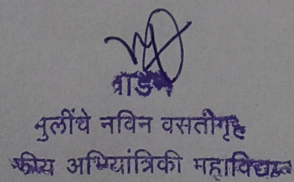 वार्डन
मुलींचे नविन वसतीगृह
कीय अभियांत्रिकी महाविद्यालय